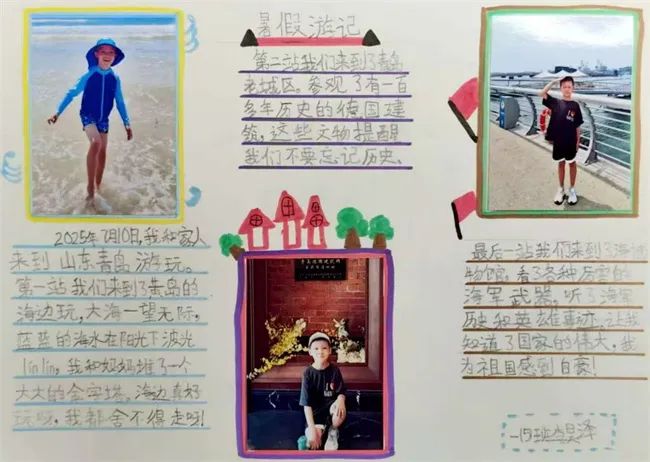 暑假游记
2025年7月10日,我和家人
来到山东青岛游玩。
第一站我们来到了黄岛的
海边玩,大海一望无际,
蓝蓝的海水在阳光下波光
lin lin,我和妈妈堆了一个
大大的金字塔,海边真好
玩呀,我都舍不得走呀!
第二站我们来到了青岛
老城区。参观了有一百
多年历史的德国建
筑,这些文物提醒
我们不要忘记历史。
最后一站我们来到了海洋
物馆,看了各种厉害的
海军武器,听了海军
历史和英雄事迹,让我
知道了国家的伟大,我
为祖国感到自豪!
一15班